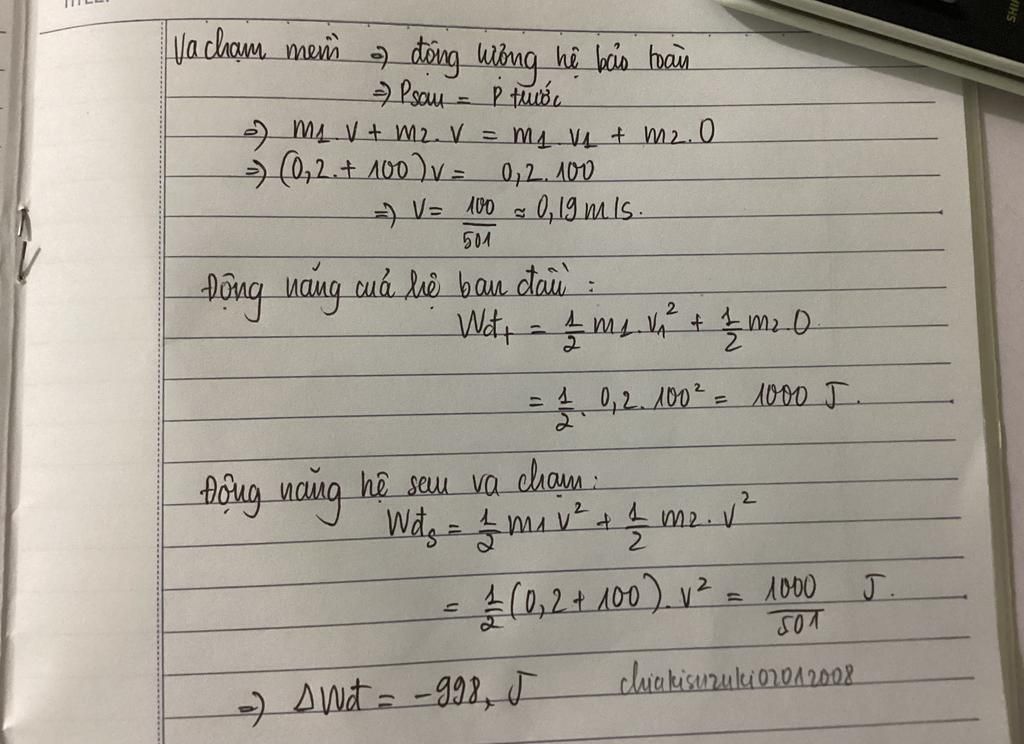 Va chạm mềm => động lượng hệ bảo toàn
=> Psau = P trước
=> m1.v + m2.v = m1.v1 + m2.0
=> (0,2 + 100)v = 0,2.100
=> v = 100/501 ≈ 0,19 m/s.
Động năng của hệ ban đầu :
Wđt = 1/2 m1.v1² + 1/2 m2 0
= 1/2. 0,2.100² = 1000 J.
Động năng hệ sau va chạm:
Wđs = 1/2 m1 v² + 1/2 m2.v²
= 1/2 (0,2 + 100).v² = 1000/501 J.
=> ΔWđ = -998, J
chiakisuzuki02012008